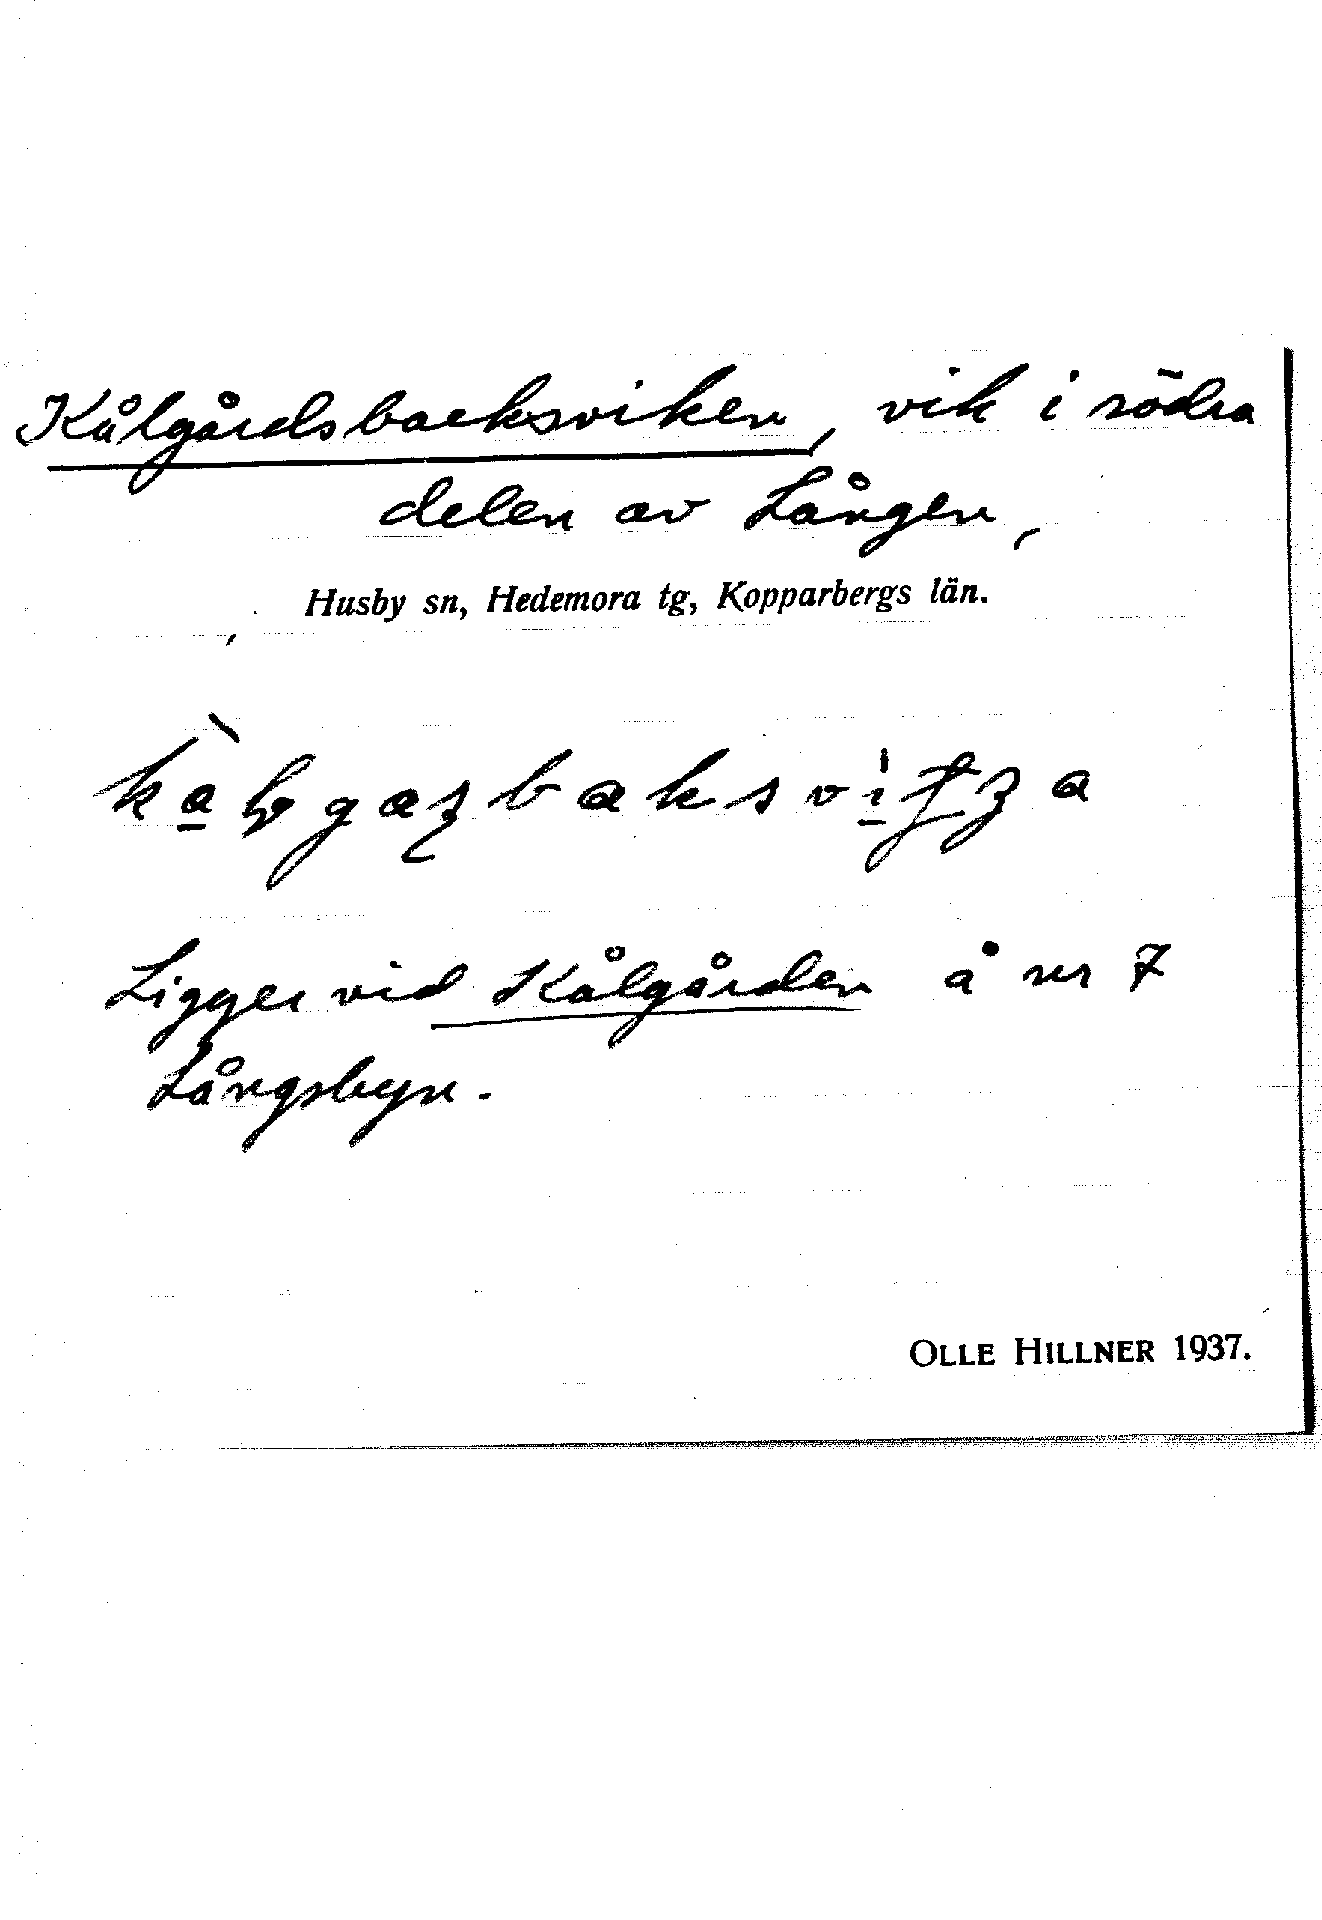 Kålgårdsbacksviken, vik i södra
delen av Lången,
Husby sn, Hedemora tg, Kopparbergs län.
Ligger vid Kålgården å nr 7
Långsbyn.
OLLE HILLNER 1937.